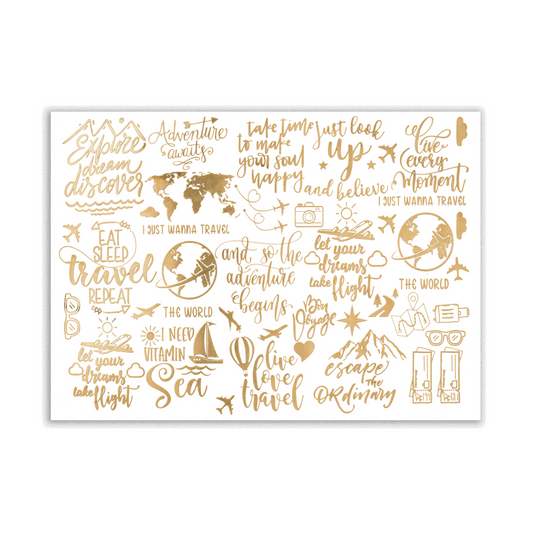 Explore
dream
discover
Adventure
awaits
take time
to make
your soul
happy
just look
up
and believe
live
every
moment
I JUST WANNA TRAVEL
I JUST WANNA TRAVEL
EAT
SLEEP
travel
REPEAT
THE WORLD
and so the
adventure
begins
let your
dreams
take flight
THE WORLD
Bon
Voyage
let your
dreams
take flight
I NEED
VITAMIN
Sea
live
love
travel
escape
THE
ORdinary